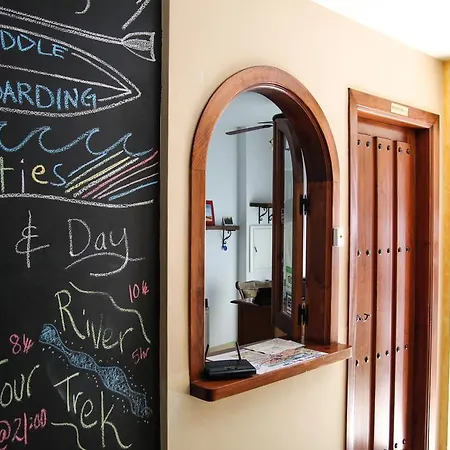 DDLE
OARDING
ties
& Day
River
10€
5hr
Trek
8€
our
@21:00